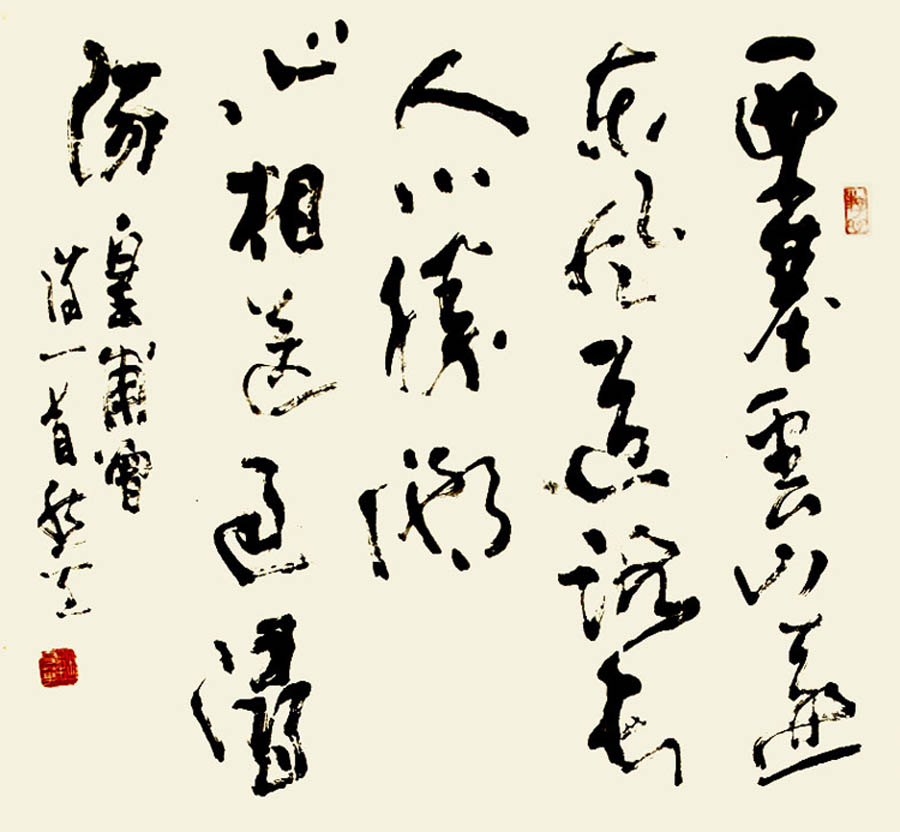 西塞雲山遠
東風道路長
人心勝潮
水相送過潯
陽 皇甫曾
詩一首